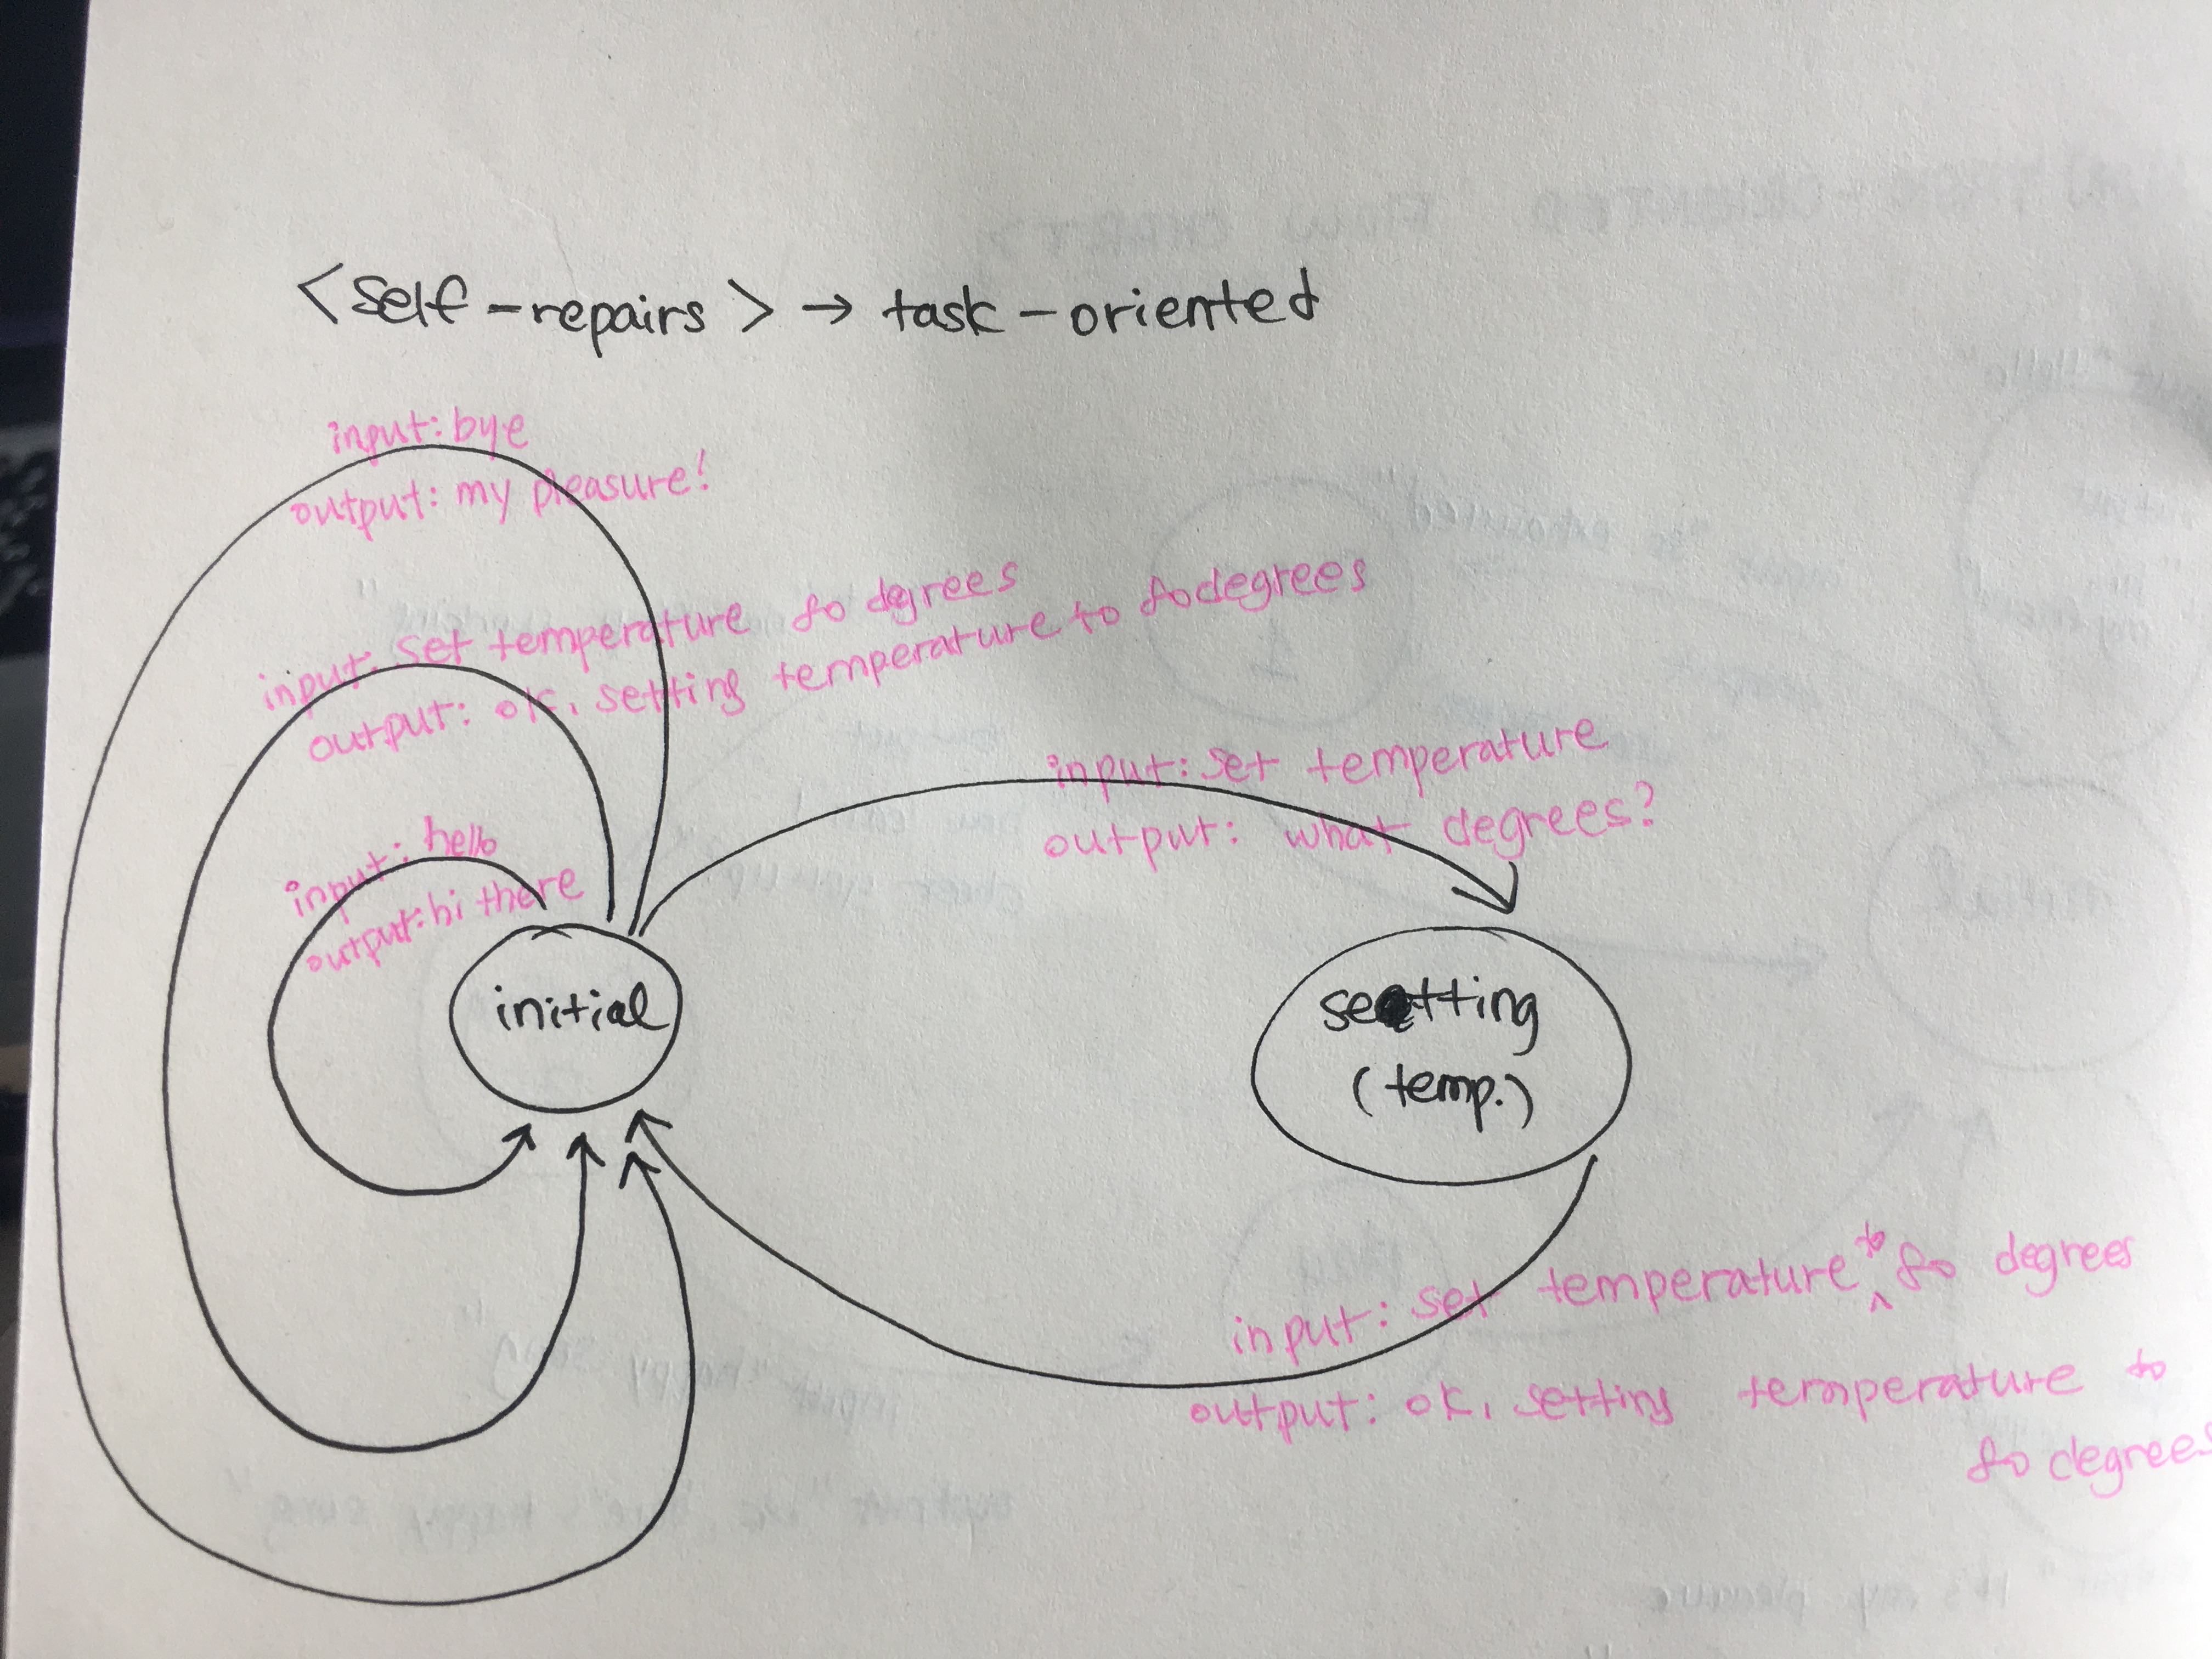 <self-repairs> → task-oriented
input: bye
output: my pleasure!
input: set temperature 80 degrees
output: ok, setting temperature to 80 degrees
input: hello
output: hi there
input: set temperature
output: what degrees?
initial
setting
(temp.)
input: set temperature to 80 degrees
output: ok, setting temperature to
80 degrees